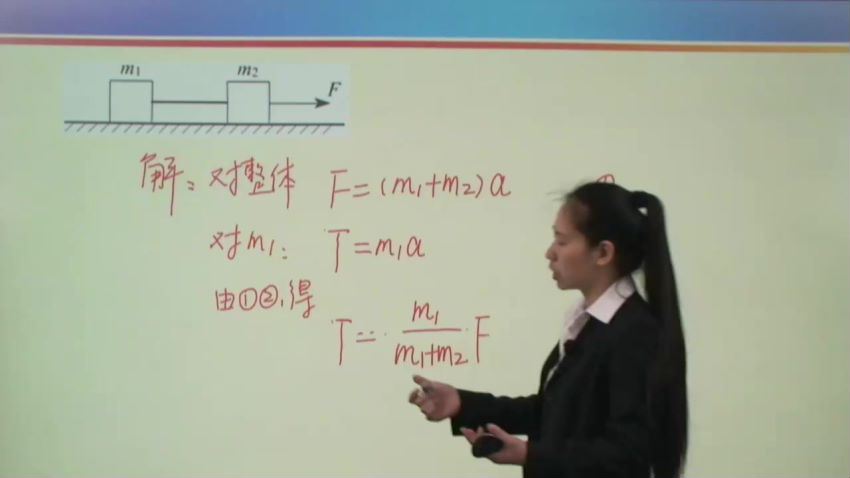 m₁ m₂ F
解：对整体 F=(m₁+m₂)a ①
对m₁： T=m₁a
由①②，得
T= m₁/(m₁+m₂) F